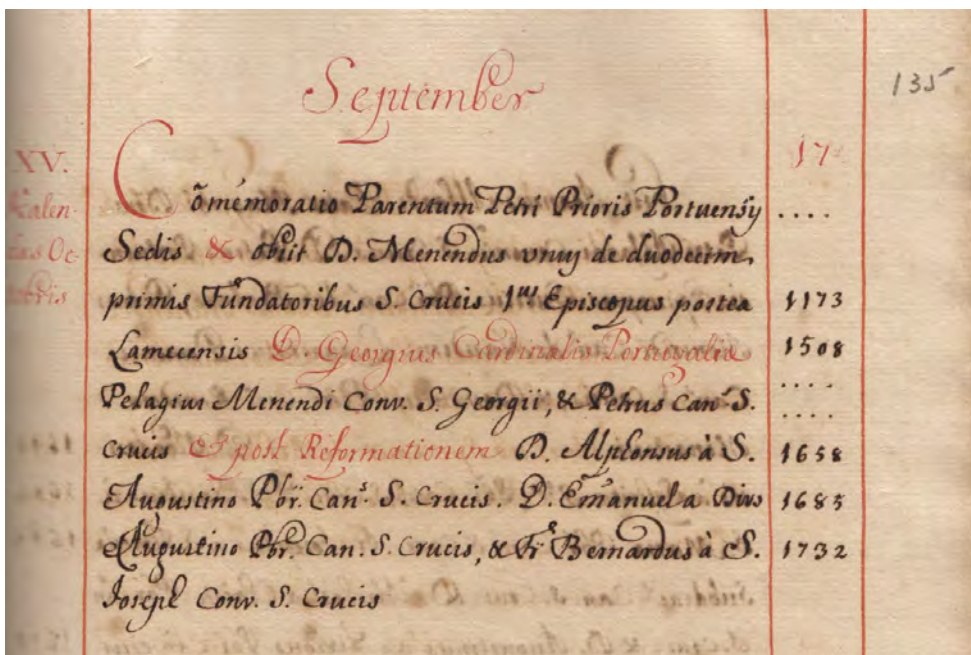 135
September
17
XV.
Kalen-
das Oc-
tobris
Cõmemoratio Parentum Petri Prioris Portuensis ....
Sedis & obiit D. Menendus unus de duodecim
primis Fundatoribus S. Crucis 1us Episcopus postea 1173
Lamecensis D. Georgius Cardinalis Portuvalia 1508
Pelagius Menendi Conv. S. Georgii, & Petrus Can. S. ....
....
Crucis Et post Reformationem D. Alphonsus à S. 1658
Augustino Pbr. Can. S. Crucis. D. Emanuel a Divo 1685
Augustino Pbr. Can. S. Crucis, & Fr. Bernardus à S. 1732
Joseph Conv. S. Crucis